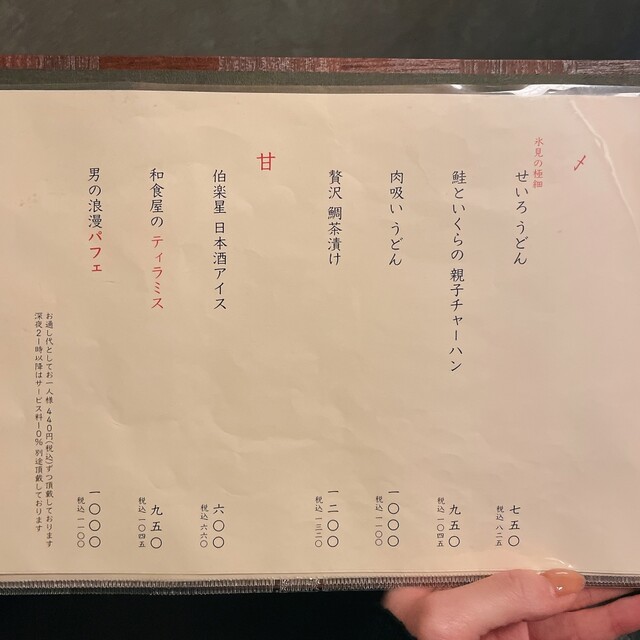 〆
氷見の極細
せいろ うどん
七五〇
税込 八二五
鮭といくらの 親子チャーハン
九五〇
税込 一〇四五
肉吸い うどん
一〇〇〇
税込 一一〇〇
贅沢 鯛茶漬け
一二〇〇
税込 一三二〇
甘
伯楽星 日本酒アイス
六〇〇
税込 六六〇
和食屋の ティラミス
九五〇
税込 一〇四五
男の浪漫パフェ
一〇〇〇
税込 一一〇〇
お通し代としてお一人様 440円(税込)ずつ頂戴しております
深夜21時以降はサービス料10% 別途頂戴しております